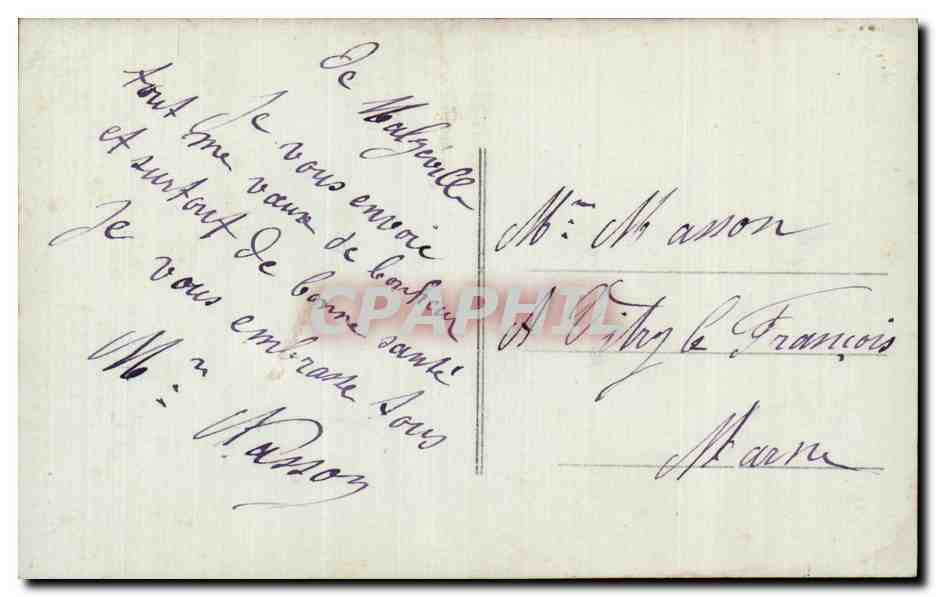 De Malzéville
Je vous envoie
tout me vœux de bonheur
et surtout de bonne santé
Je vous embrasse tous
M.n Masson
M.n Masson
A Vitry le François
Marne
CPAPHIL